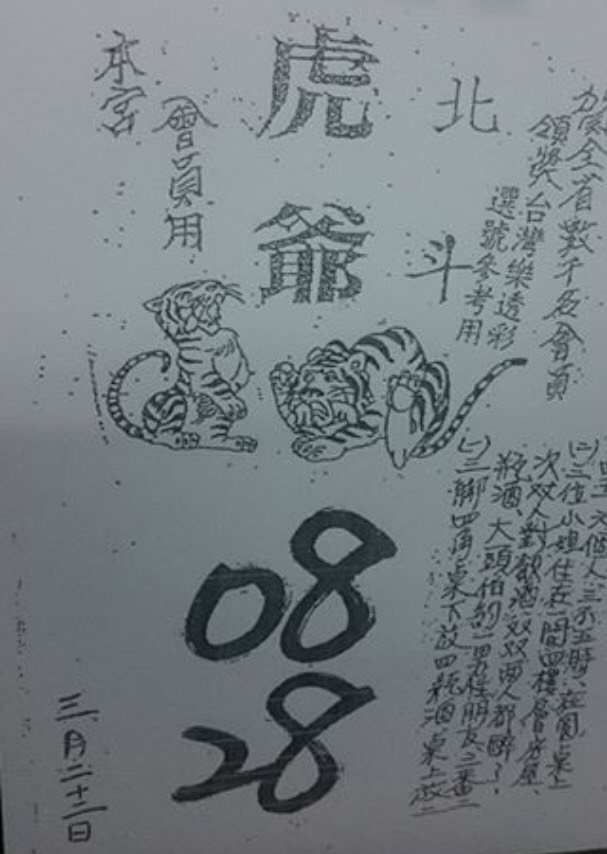 賀全省數千名會員
領獎台灣樂透彩
選號參考用
北斗
虎爺
會員用
本宮
㈠三腳四角桌下放四瓶酒桌上放二
瓶酒、大頭伯約一男性朋友三番二
次双人對飲酒双双兩人都醉了!
㈡三位小姐住在一間四樓層房屋、
六個人三不五時,在圓桌上
08
28
三月二十二日